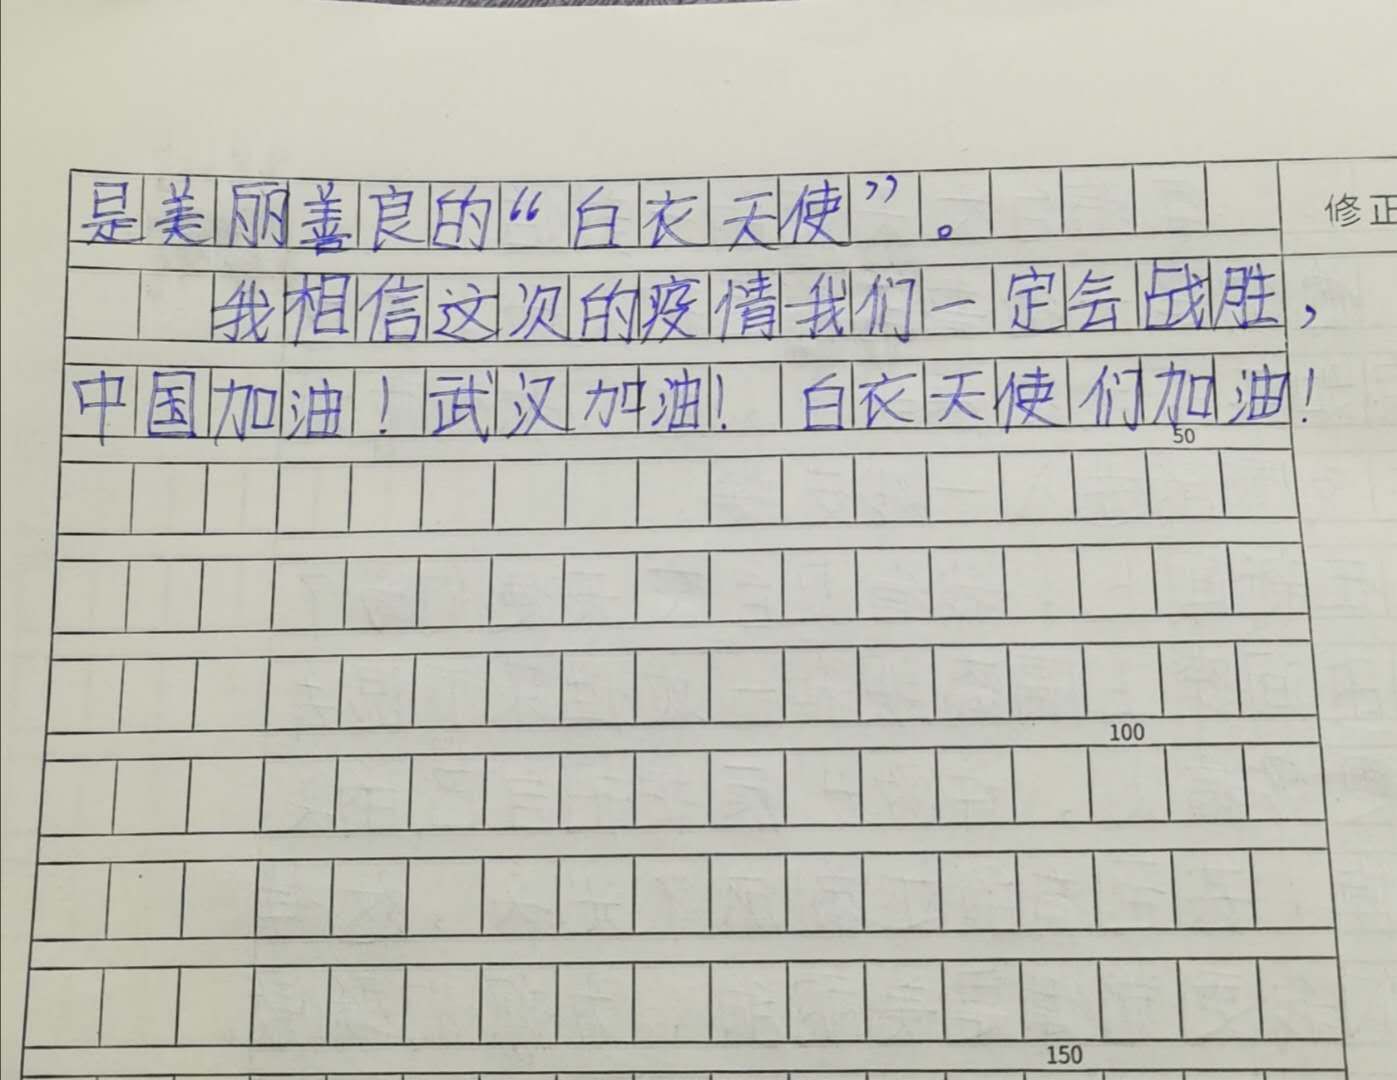 是美丽善良的“白衣天使”。
修正
我相信这次的疫情我们一定会战胜，
中国加油！武汉加油！白衣天使们加油！
50
100
150